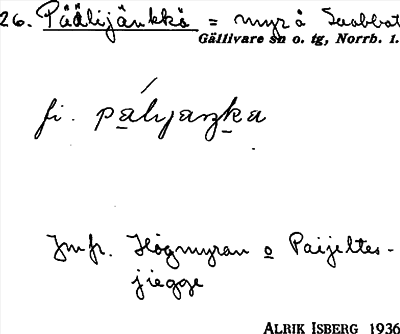 26. Päälijänkkä = myrå Svabbat
Gällivare sn o. tg, Norrb. l.
fi. pályaŋka
Jmfr. Högmyran o Paijeltes-
jiegge
ALRIK ISBERG 1936